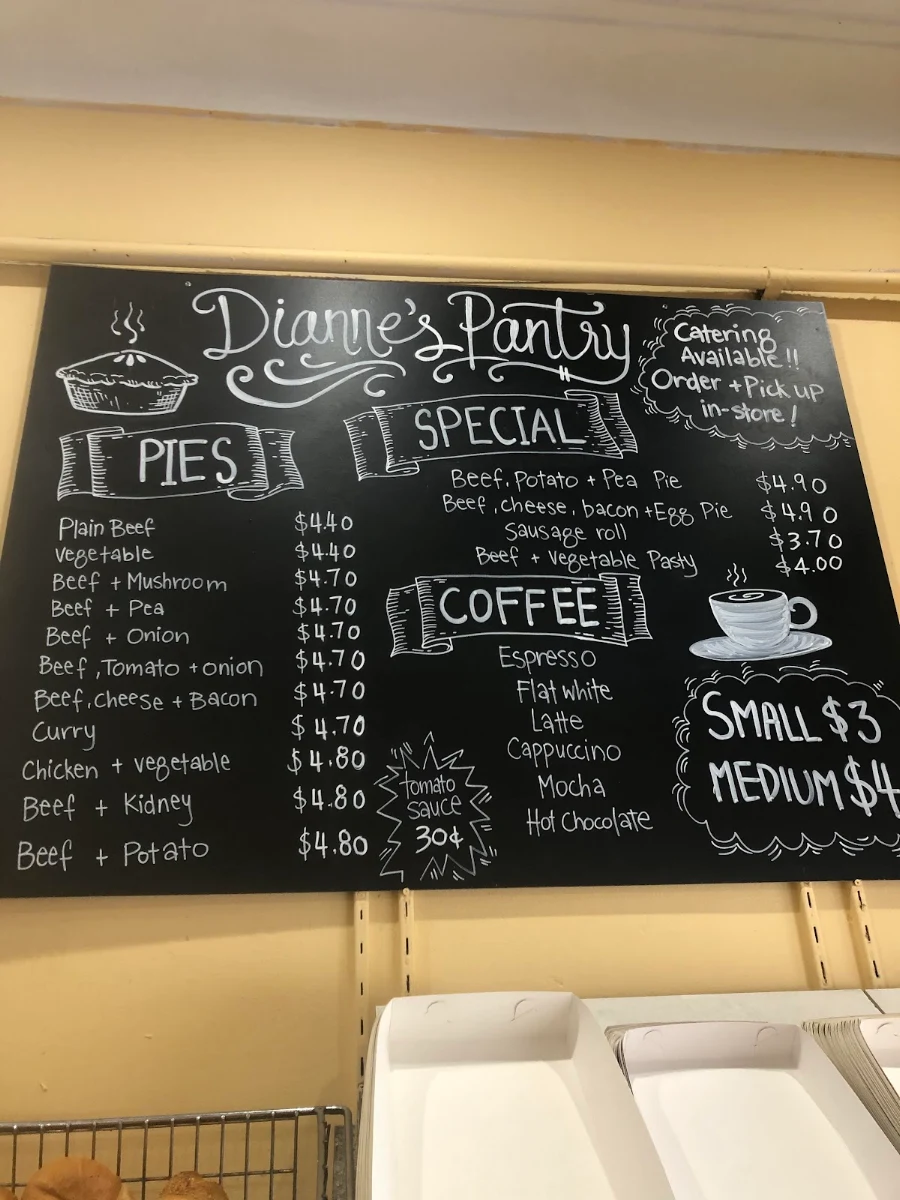 Dianne's Pantry
Catering
Available!!
Order + Pick up
in-store!
PIES
Plain Beef $4.40
Vegetable $4.40
Beef + Mushroom $4.70
Beef + Pea $4.70
Beef + Onion $4.70
Beef, Tomato + onion $4.70
Beef, Cheese + Bacon $4.70
Curry $4.70
Chicken + vegetable $4.80
Beef + Kidney $4.80
Beef + Potato $4.80
SPECIAL
Beef, Potato + Pea Pie $4.90
Beef, cheese, bacon + Egg Pie $4.90
Sausage roll $3.70
Beef + Vegetable Pasty $4.00
COFFEE
Espresso
Flat white
Latte
Cappuccino
Mocha
Hot Chocolate
SMALL $3
MEDIUM $4
Tomato
sauce
30¢